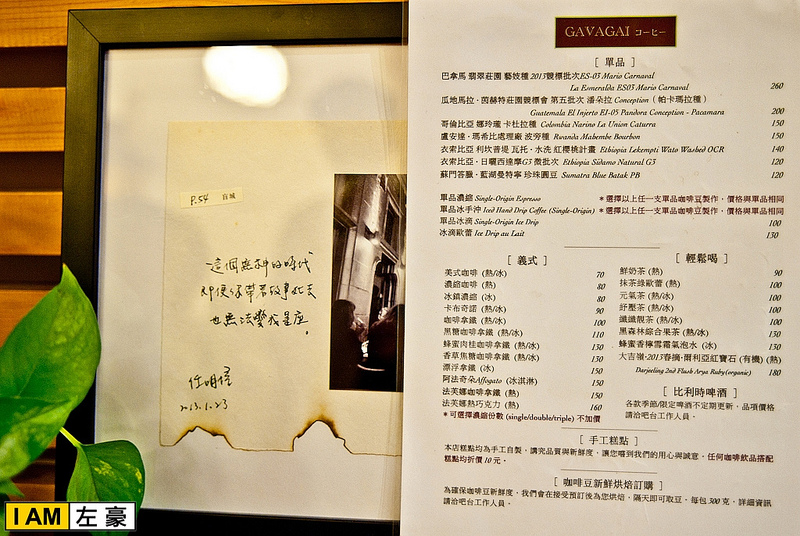 P.54 盲城
這個無神的時代
即便你帶著故事升天
也無法變成星座。
任明信
2013.1.23
GAVAGAI コーヒー
[ 單品 ]
巴拿馬 翡翠莊園 藝妓種 2013競標批次ES-03 Mario Carnaval
La Esmeralda ES03 Mario Carnaval 260
瓜地馬拉·茵赫特莊園競標會 第五批次 潘朵拉 Conception ( 帕卡瑪拉種 )
Guatemala El Injerto EI-05 Pandora Conception - Pacamara 200
哥倫比亞 娜玲瓏 卡杜拉種 Colombia Narino La Union Caturra 150
盧安達·瑪希比處理廠 波旁種 Rwanda Mabembe Bourbon 150
衣索比亞 利坎普堤 瓦托·水洗 紅櫻桃計畫 Ethiopia Lekempti Wato Washed OCR 140
衣索比亞·日曬西達摩G3 微批次 Ethiopia Sidamo Natural G3 120
蘇門答臘·藍湖曼特寧 珍珠圓豆 Sumatra Blue Batak PB 120
單品濃縮 Single-Origin Espresso *選擇以上任一支單品咖啡豆製作，價格與單品相同
單品冰手沖 Iced Hand Drip Coffee (Single-Origin) *選擇以上任一支單品咖啡豆製作，價格與單品相同
單品冰滴 Single-Origin Ice Drip 100
冰滴歐蕾 Ice Drip au Lait 130
[ 義式 ]
美式咖啡 (熱/冰) 70
濃縮咖啡 (熱) 80
冰鎮濃縮 (冰) 80
卡布奇諾 (熱/冰) 90
咖啡拿鐵 (熱/冰) 100
黑糖咖啡拿鐵 (熱/冰) 110
蜂蜜肉桂咖啡拿鐵 (熱/冰) 130
香草焦糖咖啡拿鐵 (熱/冰) 130
漂浮拿鐵 (冰) 150
阿法奇朵Affogato (冰淇淋) 150
法芙娜咖啡拿鐵 (熱) 150
法芙娜熱巧克力 (熱) 160
*可選擇濃縮份數 (single/double/triple) 不加價
[ 輕鬆喝 ]
鮮奶茶 (熱) 90
抹茶綠歐蕾 (熱) 100
元氣茶 (熱/冰) 100
紓壓茶 (熱/冰) 100
纖纖靚茶 (熱/冰) 100
黑森林綜合果茶 (熱/冰) 130
蜂蜜香檸雪霜氣泡水 (冰) 130
大吉嶺·2013春摘·爾利亞紅寶石 (有機) (熱)
Darjeeling 2nd Flush Arya Ruby(organic) 180
[ 比利時啤酒 ]
各款季節/限定啤酒不定期更新，品項價格
請洽吧台工作人員。
[ 手工糕點 ]
本店糕點均為手工自製，講究品質與新鮮度，讓您嚐到我們的用心與誠意，任何咖啡飲品搭配
糕點均折價10元。
[ 咖啡豆新鮮烘焙訂購 ]
為確保咖啡豆新鮮度，我們會在接受預訂後為您烘焙，隔天即可取豆，每包300克，詳細資訊
請洽吧台工作人員。
I AM 左豪